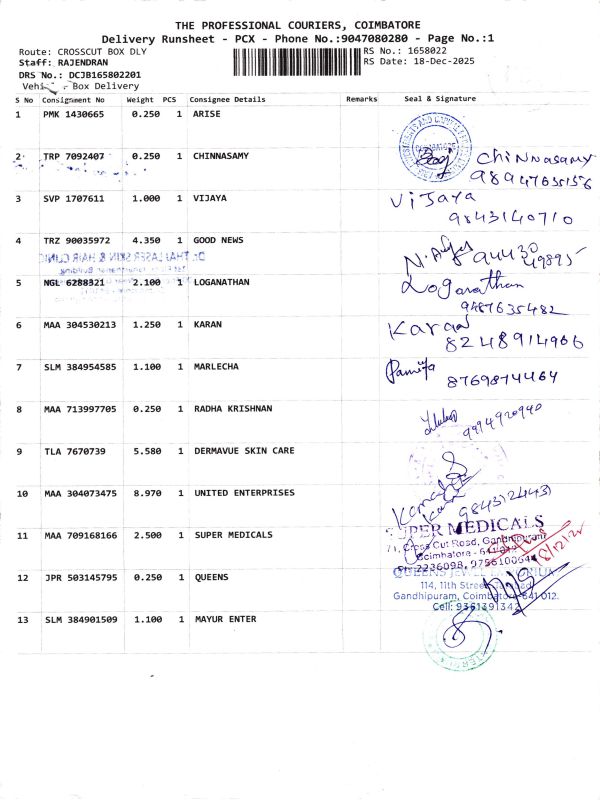 THE PROFESSIONAL COURIERS, COIMBATORE
Delivery Runsheet - PCX - Phone No.:9047080280 - Page No.:1
Route: CROSSCUT BOX DLY RS No.: 1658022
Staff: RAJENDRAN RS Date: 18-Dec-2025
DRS No.: DCJB165802201
Box Delivery
S No Consignment No Weight PCS Consignee Details Remarks Seal & Signature
1 PMK 1430665 0.250 1 ARISE
2 TRP 7092407 0.250 1 CHINNASAMY Chinnasamy
3 SVP 1707611 1.000 1 VIJAYA Vijaya
9843140710
4 TRZ 90035972 4.350 1 GOOD NEWS
94430 49895
Dr. THAI LASER SKIN & HAIR CLINIC
5 NGL 6288321 2.100 1 LOGANATHAN Loganathan
9487635482
6 MAA 304530213 1.250 1 KARAN Karan
8248914966
7 SLM 384954585 1.100 1 MARLECHA
8769874464
8 MAA 713997705 0.250 1 RADHA KRISHNAN
9994920940
9 TLA 7670739 5.580 1 DERMAVUE SKIN CARE
10 MAA 304073475 8.970 1 UNITED ENTERPRISES
11 MAA 709168166 2.500 1 SUPER MEDICALS SUPER MEDICALS
71, Cross Cut Road, Gandhipuram
Coimbatore
12 JPR 503145795 0.250 1 QUEENS QUEENS
114, 11th Street
Gandhipuram, Coimbatore-641 012.
Cell: 9361391342
13 SLM 384901509 1.100 1 MAYUR ENTER